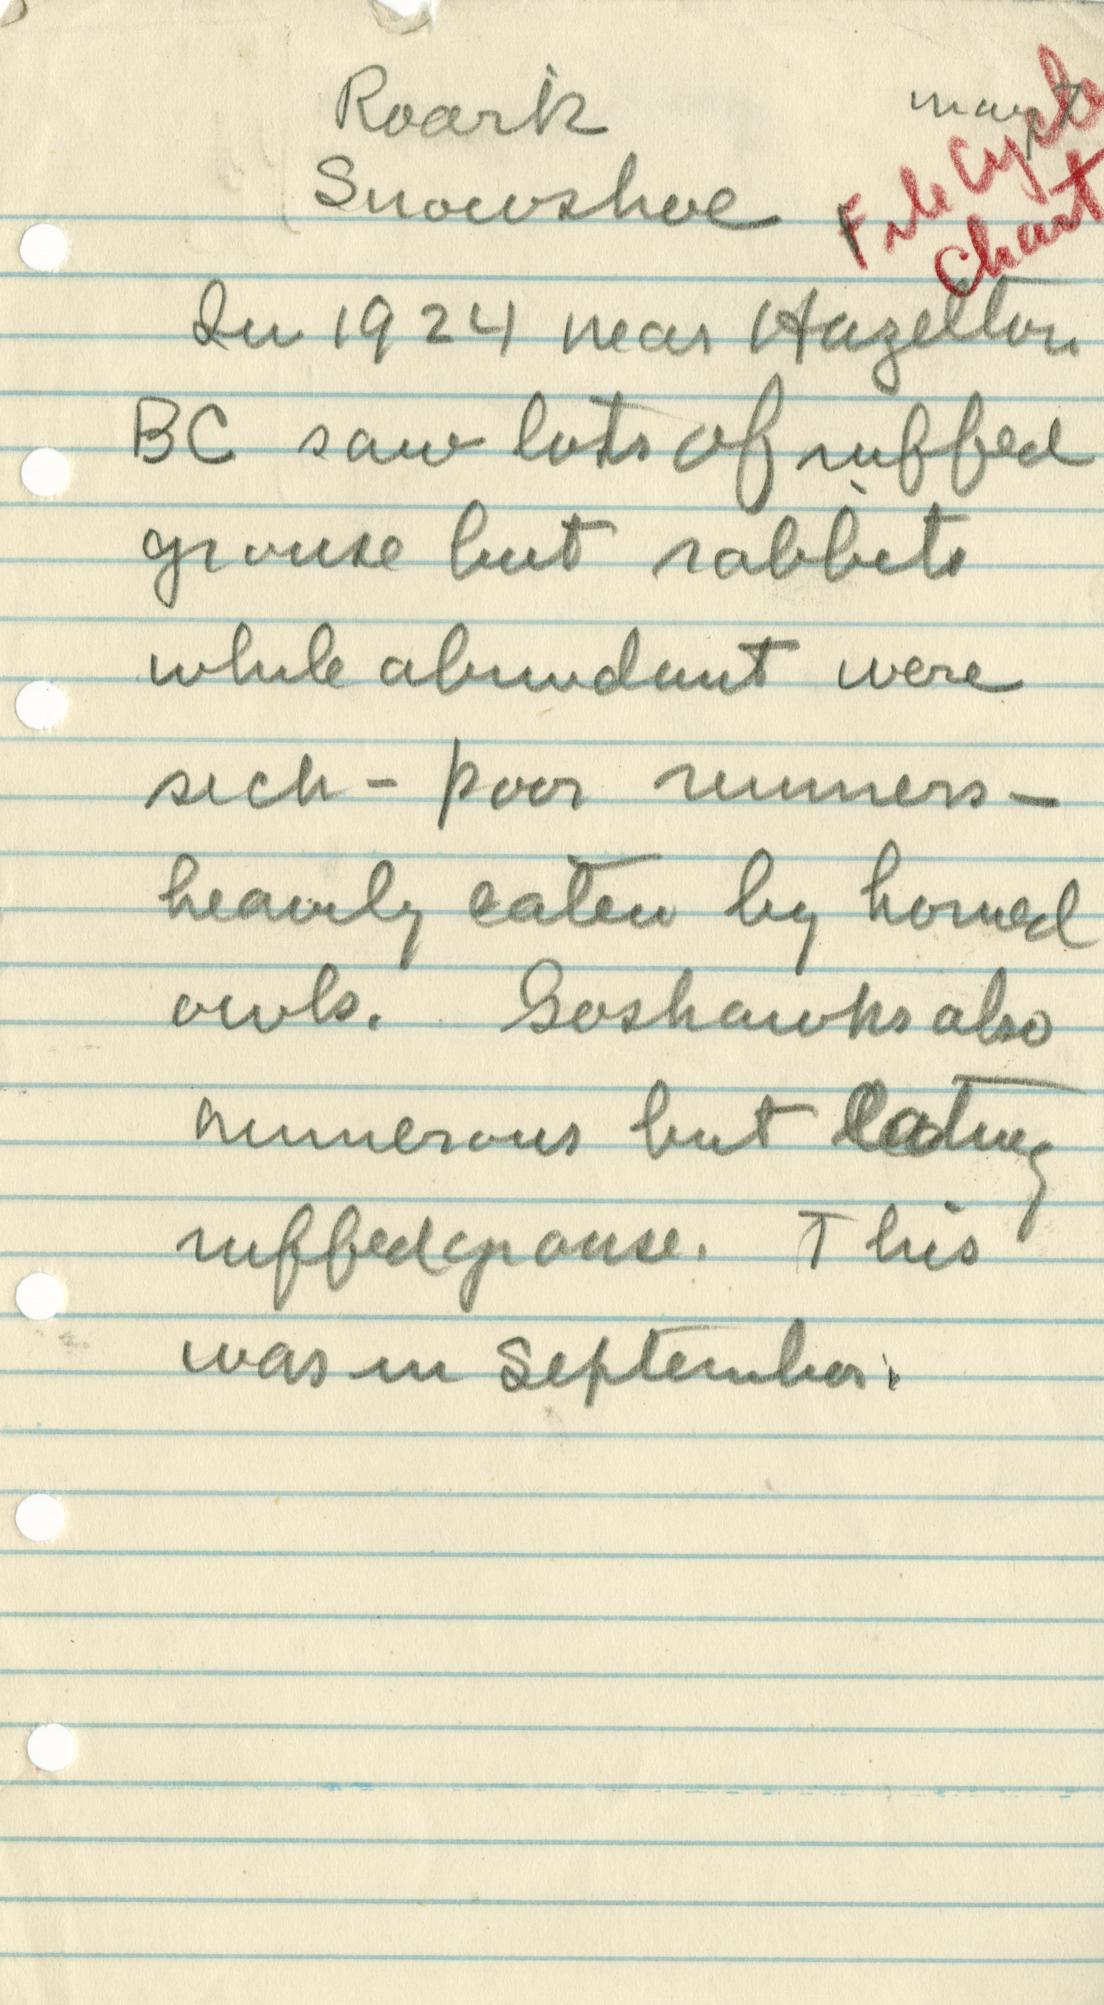 Roark
Snowshoe
May 7
File Cycle
Chart
In 1924 near Hazelton
BC saw lots of ruffed
grouse but rabbits
while abundant were
sick - poor runners -
heavily eaten by horned
owls. Goshawks also
numerous but eating
ruffed grouse. This
was in September.